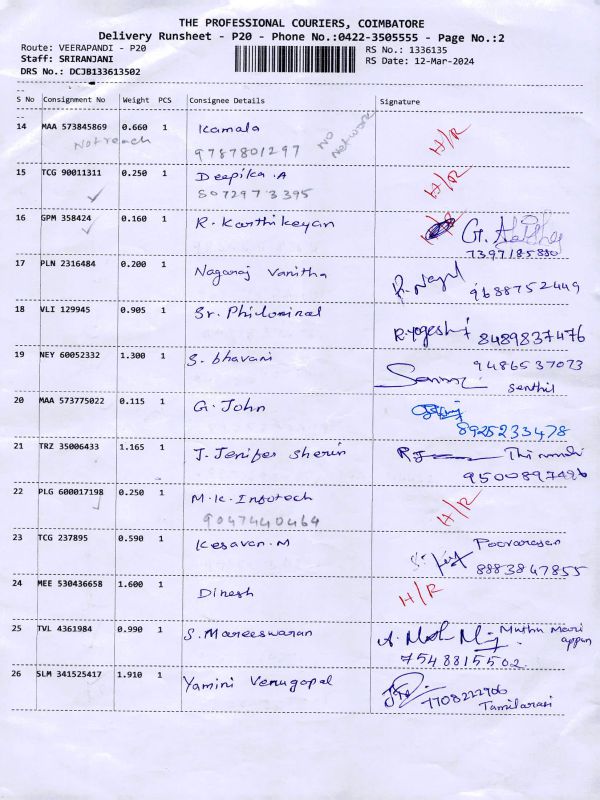 THE PROFESSIONAL COURIERS, COIMBATORE
Delivery Runsheet - P20 - Phone No.:0422-3505555 - Page No.:2
Route: VEERAPANDI - P20
RS No.: 1336135
Staff: SRIRANJANI
RS Date: 12-Mar-2024
DRS No.: DCJB133613502
S No Consignment No Weight PCS Consignee Details Signature
14 MAA 573845869 0.660 1 Kamala No Network H/R
Not reach 9787801297
15 TCG 90011311 0.250 1 Deepika.A H/R
8072973395
16 GPM 358424 0.160 1 R. Karthikeyan H/R G.
7397185880
17 PLN 2316484 0.200 1 Nagaraj Vanitha
9688752449
18 VLI 129945 0.905 1 Sr. Philominal
R.Yogesh 8489837476
19 NEY 60052332 1.300 1 S. bhavani 9486537073
Senthil
20 MAA 573775022 0.115 1 G. John
8925233478
21 TRZ 35006433 1.165 1 J. Jenifer Sherin
9500897496
22 PLG 600017198 0.250 1 M.K. Infotech H/R
9047440464
23 TCG 237895 0.590 1 Kesavan.M Poovarasan
8883847855
24 MEE 530436658 1.600 1 Dinesh H/R
25 TVL 4361984 0.990 1 S. Mareeswaran Muthu Mari
appan
7548815502
26 SLM 341525417 1.910 1 Yamini Venugopal
7708222906
Tamilarasi